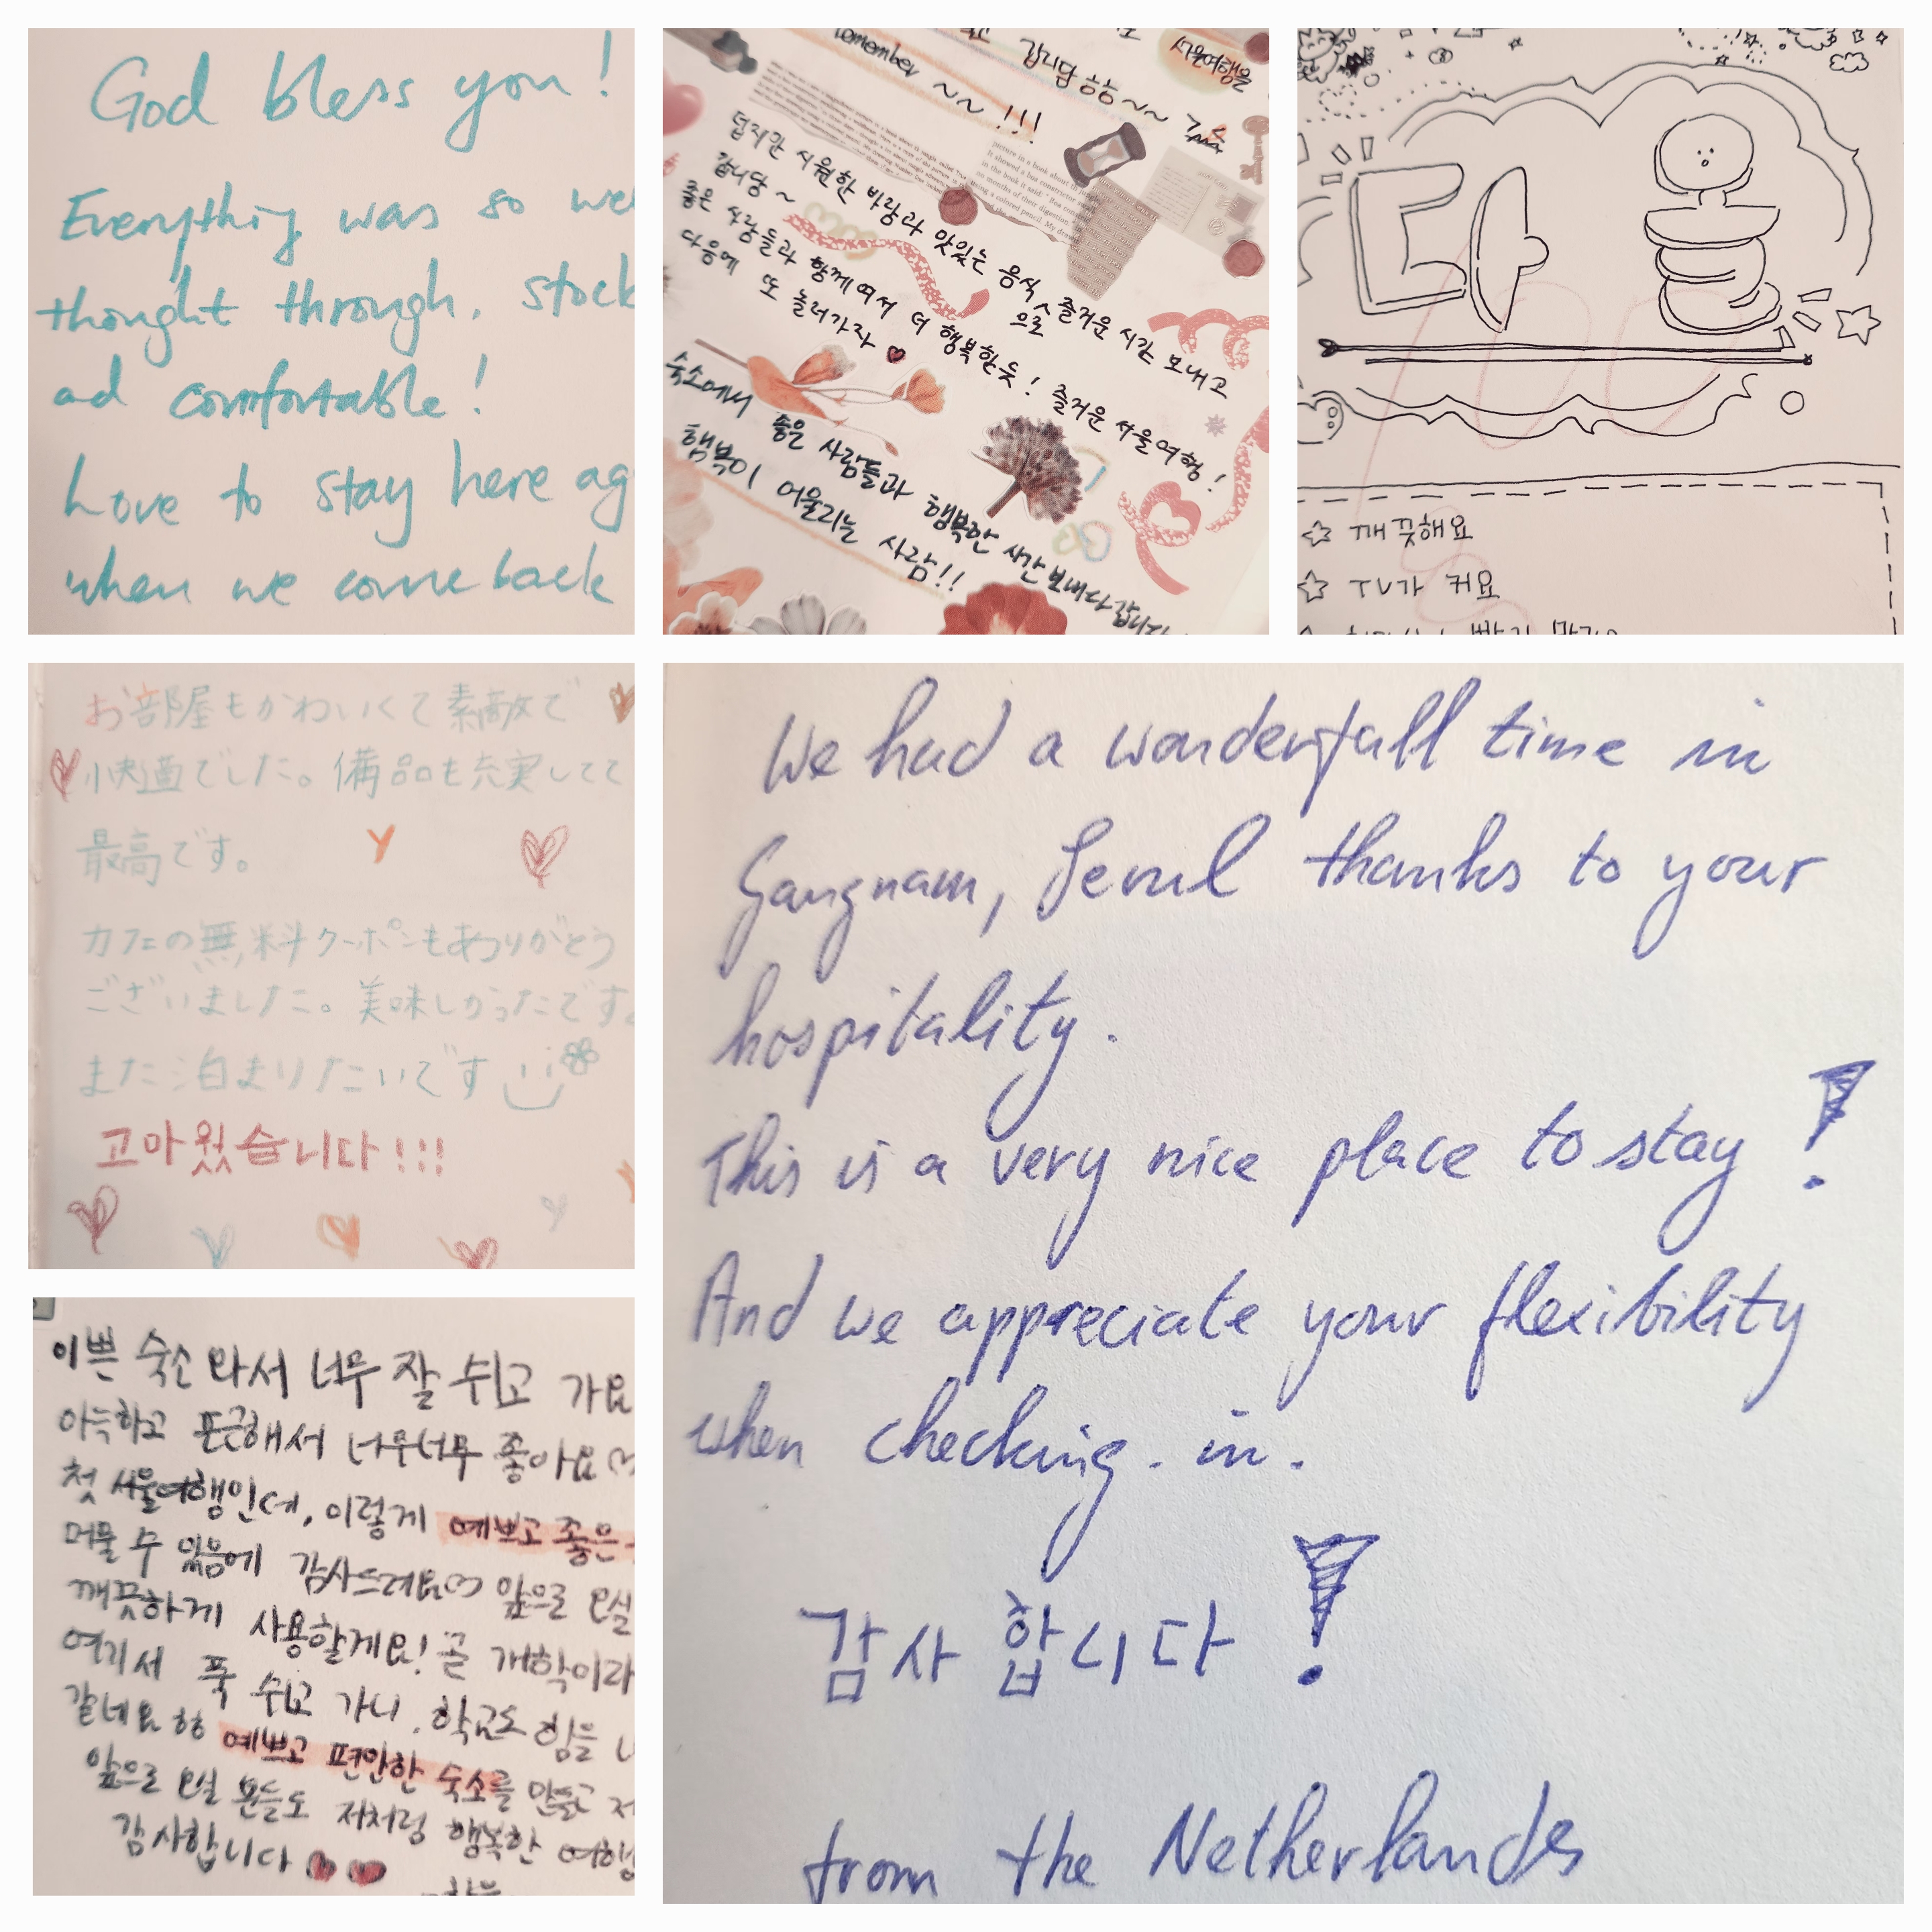 God bless you!
Everything was so we
thought through, stock
ad comfortable!
Love to stay here ag
when we come back
remember ~~!!!
갑니담 항항~~
서울여행을
덥지만 시원한 바람과 맛있는 음식으로 즐거운 시간 보내고
갑니당~
좋은 사람들과 함께여서 더 행복한듯! 즐거운 서울여행!
다음에 또 놀러가자
숙소에서 좋은 사람들과 행복한 시간 보내다 갑니다
행복이 어울리는 사람!!
깨끗해요
TV가 커요
お部屋もかわいくて素敵で
快適でした。備品も充実してて
最高です。
カフェの無料クーポンもありがとう
ございました。美味しかったです。
また泊まりたいです
고마웠습니다!!!
We had a wonderfull time in
Gangnam, Seoul thanks to your
hospitality.
This is a very nice place to stay!
And we appreciate your flexibility
when checking-in.
감사합니다!
from the Netherlands
이쁜 숙소 와서 너무 잘 쉬고 가요
아늑하고 포근해서 너무너무 좋아요♡
첫 서울여행인데, 이렇게 예쁘고 좋은
머물 수 있음에 감사드려요♡ 앞으로 오실
깨끗하게 사용할게요! 곧 개학이라
여기서 푹 쉬고 가니, 학교도 힘을 L
같네요 하하 예쁘고 편안한 숙소를 만들고 저
앞으로 오실 분들도 저처럼 행복한 여행
감사합니다